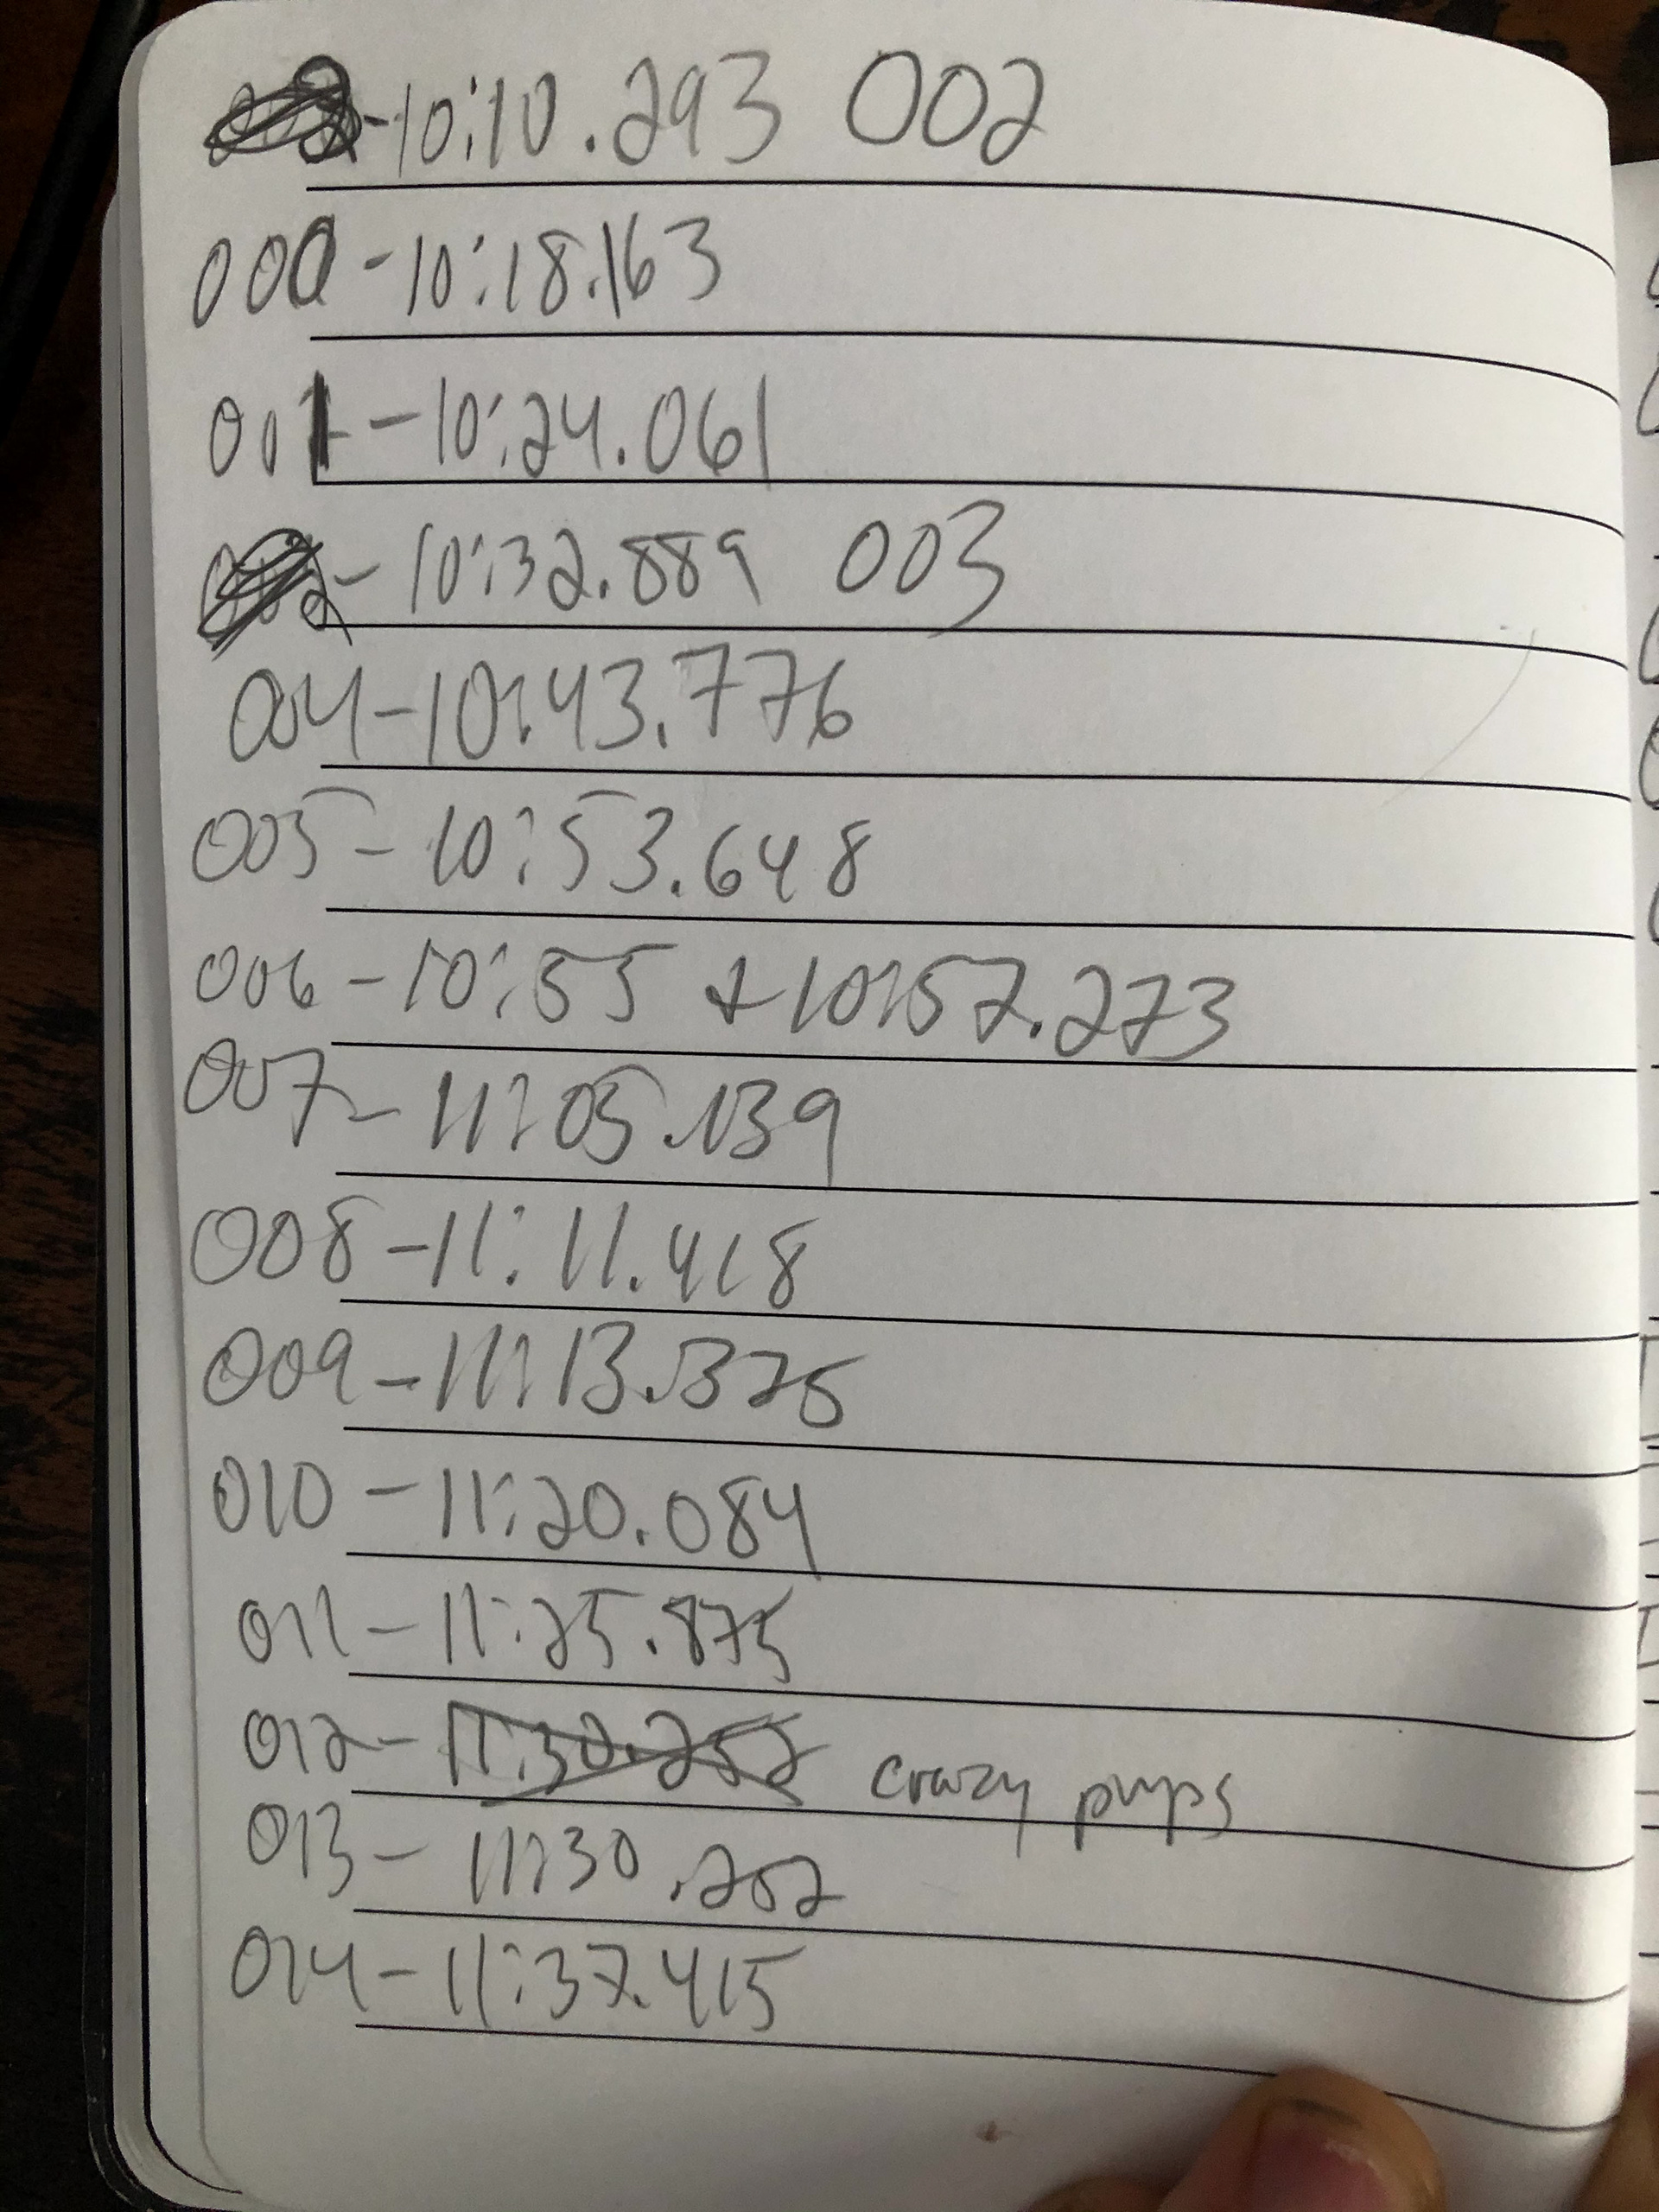 -10:10.293 002
000 -10:18.163
001 -10:24.061
- 10:32.889 003
004-10:43.776
005- 10:53.648
006-10:55 + 10:57.273
007- 11:05.139
008-11:11.418
009-11:13.375
010 -11:20.084
011-11:25.875
012- 11:30.252 crazy pups
013- 11:30.252
014-11:37.415